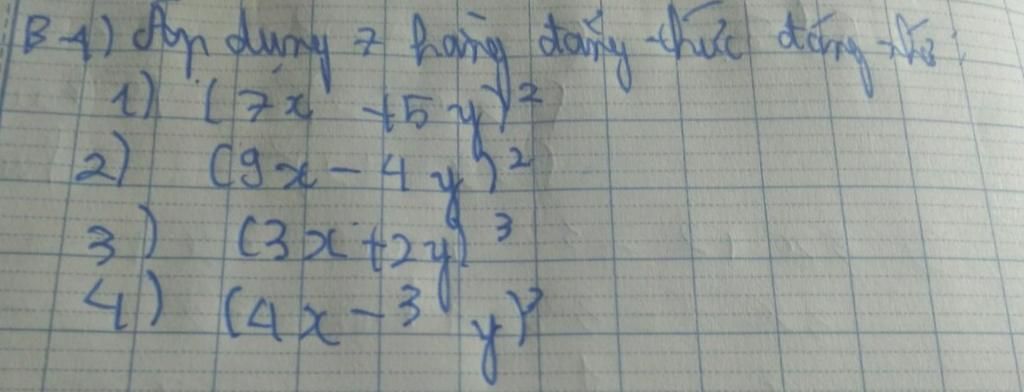 B 1) Áp dụng 7 hằng đẳng thức đáng nhớ:
1) (7x + 5y)²
2) (9x - 4y)²
3) (3x + 2y)³
4) (4x - 3y)³